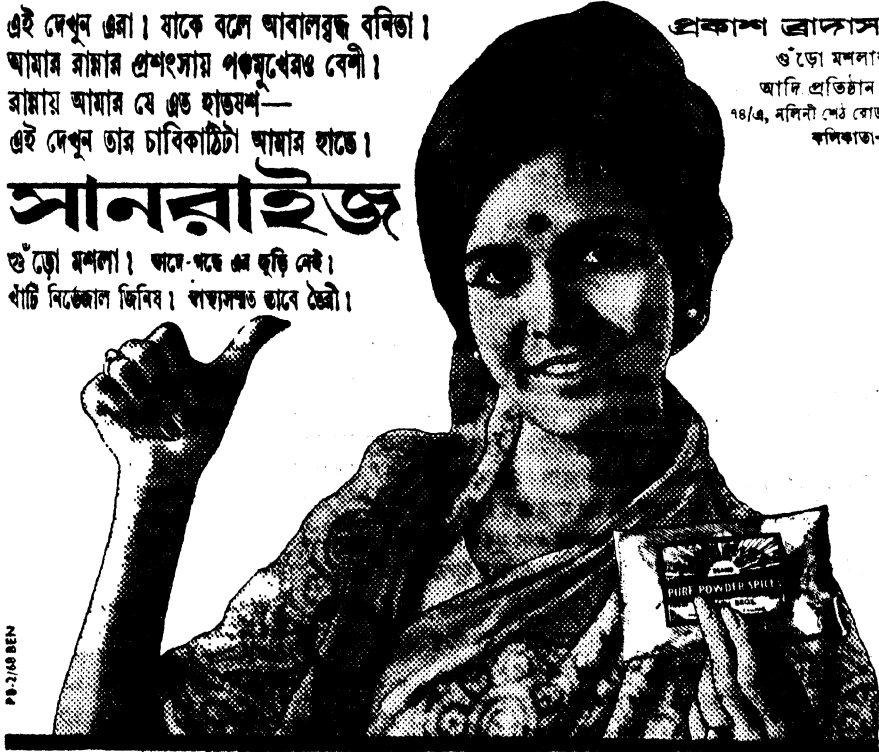 এই দেখুন এরা! যাকে বলে আবালবৃদ্ধ বনিতা!
আমার রান্নার প্রশংসায় পঞ্চমুখেরও বেশী!
রান্নায় আমার যে এত হাতযশ—
এই দেখুন তার চাবিকাঠিটা আমার হাতে!
সানরাইজ
গুঁড়ো মশলা! স্বাদে-গন্ধে এর জুড়ি নেই!
খাঁটি নির্ভেজাল জিনিষ! স্বাস্থ্যসম্মত ভাবে তৈরী!
প্রকাশ ব্রাদার্স
গুঁড়ো মশলার
আদি প্রতিষ্ঠান
৭৪/এ, নলিনী শেঠ রোড
কলিকাতা-
BRAND
PURE POWDER SPICES
BROS.
PB-2/68 BEN